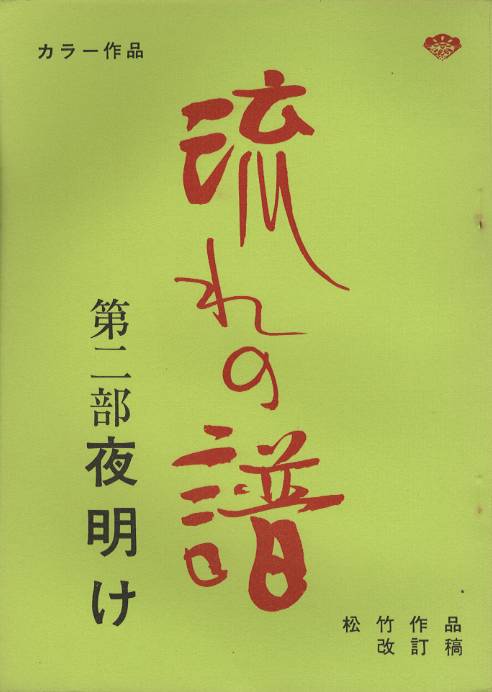 カラー作品
流れの譜
第二部夜明け
松竹作品
改訂稿